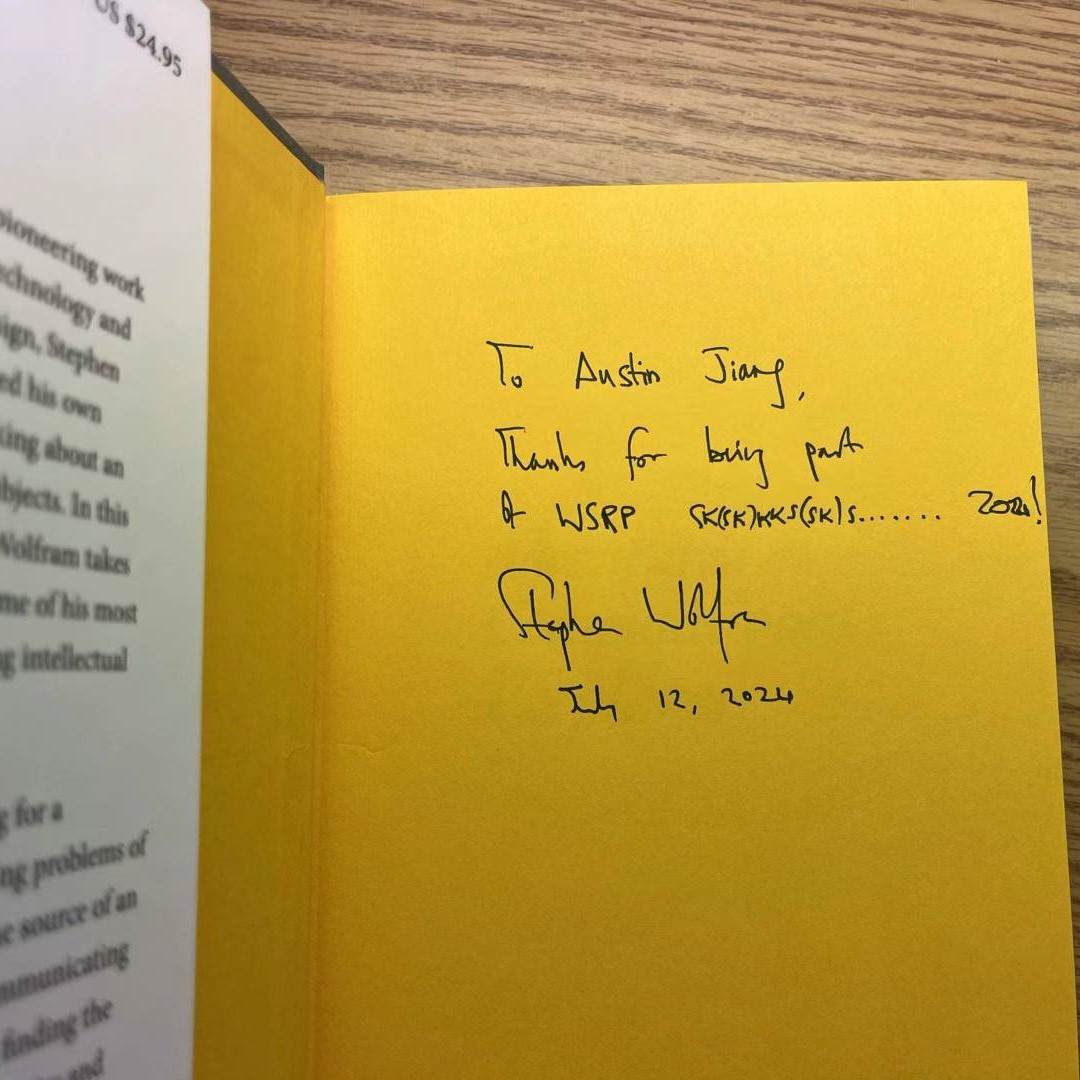 US $24.95
pioneering work
technology and
Stephen
his own
about an
In this
Wolfram takes
of his most
intellectual
for a
problems of
source of an
communicating
finding the
and
To Austin Jiang,
Thanks for being part
of WSRP SK(SK)KKS(SK)S....... 2024!
Stephen Wolfram
July 12, 2024